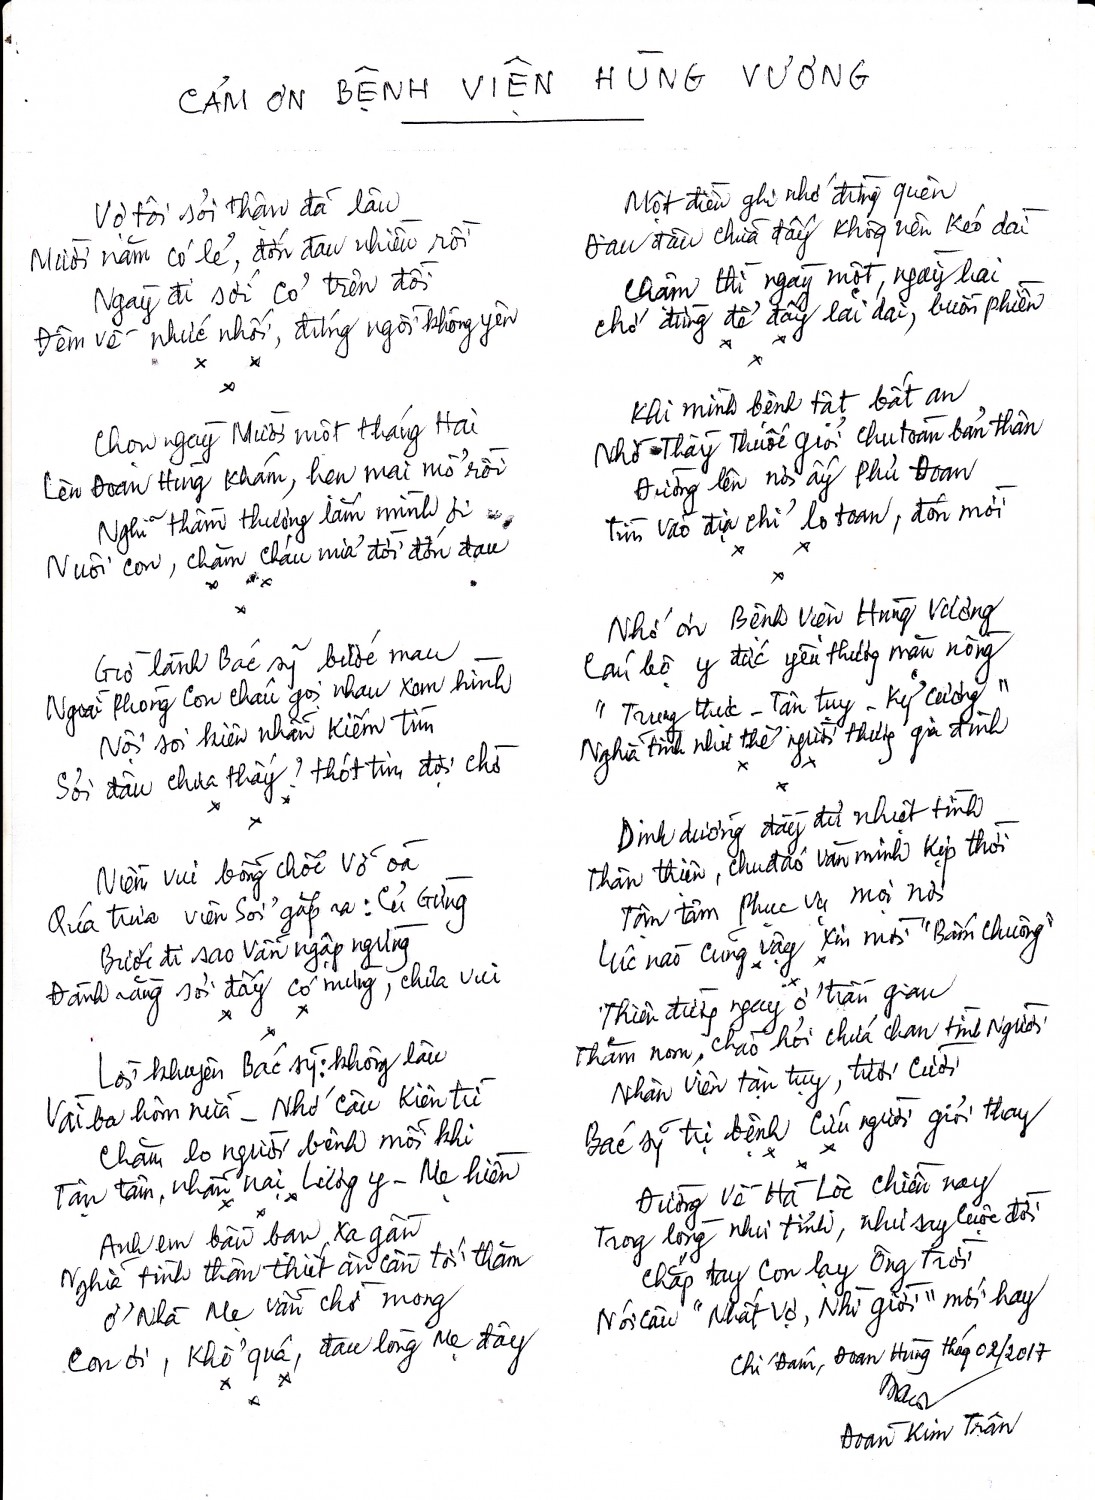 CẢM ƠN BỆNH VIỆN HÙNG VƯƠNG
Vợ tôi sỏi thận đã lâu
Mười năm có lẻ, đớn đau nhiều rồi
Ngày đi soi cỏ trên đồi
Đêm về nhức nhối, đứng ngồi không yên
Chọn ngày Mười một tháng Hai
Lên Đoan Hùng khám, hẹn mai mổ rồi
Nghĩ thầm thương lắm mình ơi
Nuôi con, chăm cháu mà đời đớn đau
Giờ lành Bác sỹ bước mau
Ngoài phòng con cháu gọi nhau xem hình
Nội soi kiên nhẫn kiếm tìm
Sỏi đâu chưa thấy? thót tim đợi chờ
Niềm vui bỗng chốc vỡ oà
Quá trưa viên sỏi gắp ra: Củ Gừng
Bước đi sao vẫn ngập ngừng
Đành rằng sỏi đấy có mừng, chửa vui
Lời khuyên Bác sỹ: không lâu
Vài ba hôm nữa - Nhớ câu kiên trì
Chăm lo người bệnh mỗi khi
Tận tâm, nhẫn nại, Lương y - Mẹ hiền
Anh em bầu bạn xa gần
Nghĩa tình thân thiết ân cần tới thăm
Ở nhà Mẹ vẫn chờ mong
Con ơi, khổ quá, đau lòng Mẹ đây
Một điều ghi nhớ đừng quên
Đau đâu chữa đấy không nên kéo dài
Chậm thì ngày một, ngày hai
Chớ đừng để đấy lai dai, buồn phiền
Khi mình bệnh tật bất an
Nhờ Thầy thuốc giỏi chu toàn bản thân
Đường lên nơi ấy Phủ Đoan
Tìm vào địa chỉ lo toan, đón mời
Nhớ ơn Bệnh viện Hùng Vương
Cán bộ y đức yêu thương mặn nồng
"Trung thực - Tận tuỵ - Kỷ cương"
Nghĩa tình như thể người thương gia đình
Dinh dưỡng đầy đủ nhiệt tình
Thân thiện, chu đáo văn minh kịp thời
Tận tâm phục vụ mọi nơi
Lúc nào cũng vậy xin mời "Bấm chuông"
Thiên đường ngay ở trần gian
Thăm nom, chào hỏi chứa chan tình Người
Nhân viên tận tụy, tươi cười
Bác sỹ trị bệnh cứu người giỏi thay
Đường về Hà Lộc chiều nay
Trong lòng như tỉnh, như say cuộc đời
Chắp tay con lạy Ông Trời
Nói câu "Nhất Vợ, Nhì giời" mới hay
Chí Đám, Đoan Hùng tháng 02/2017
Đoàn Kim Trân